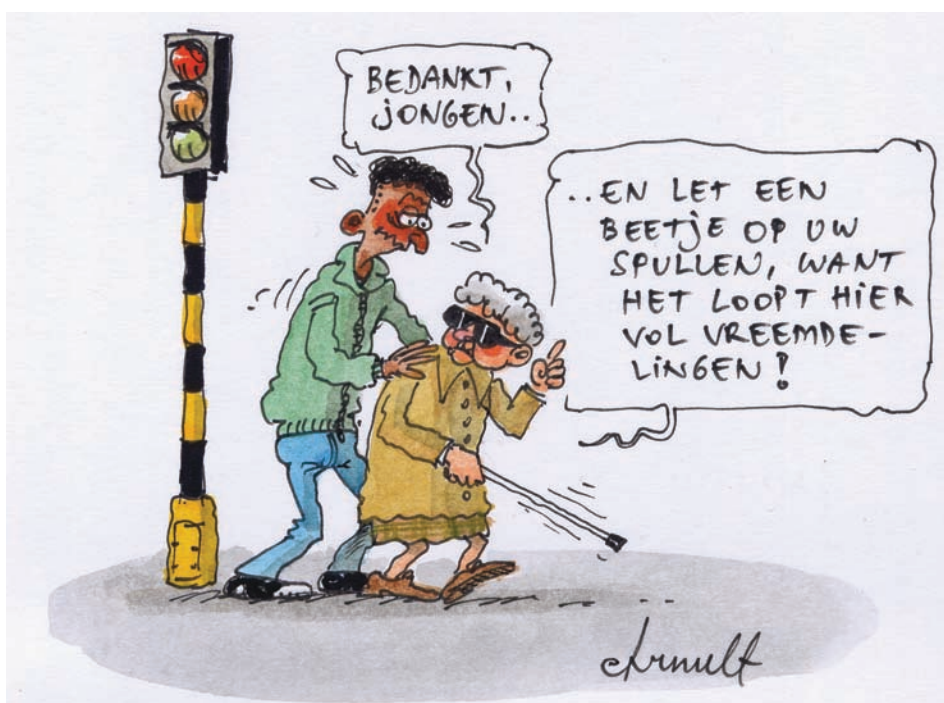 BEDANKT,
JONGEN..
..EN LET EEN
BEETJE OP UW
SPULLEN, WANT
HET LOOPT HIER
VOL VREEMDE-
LINGEN!